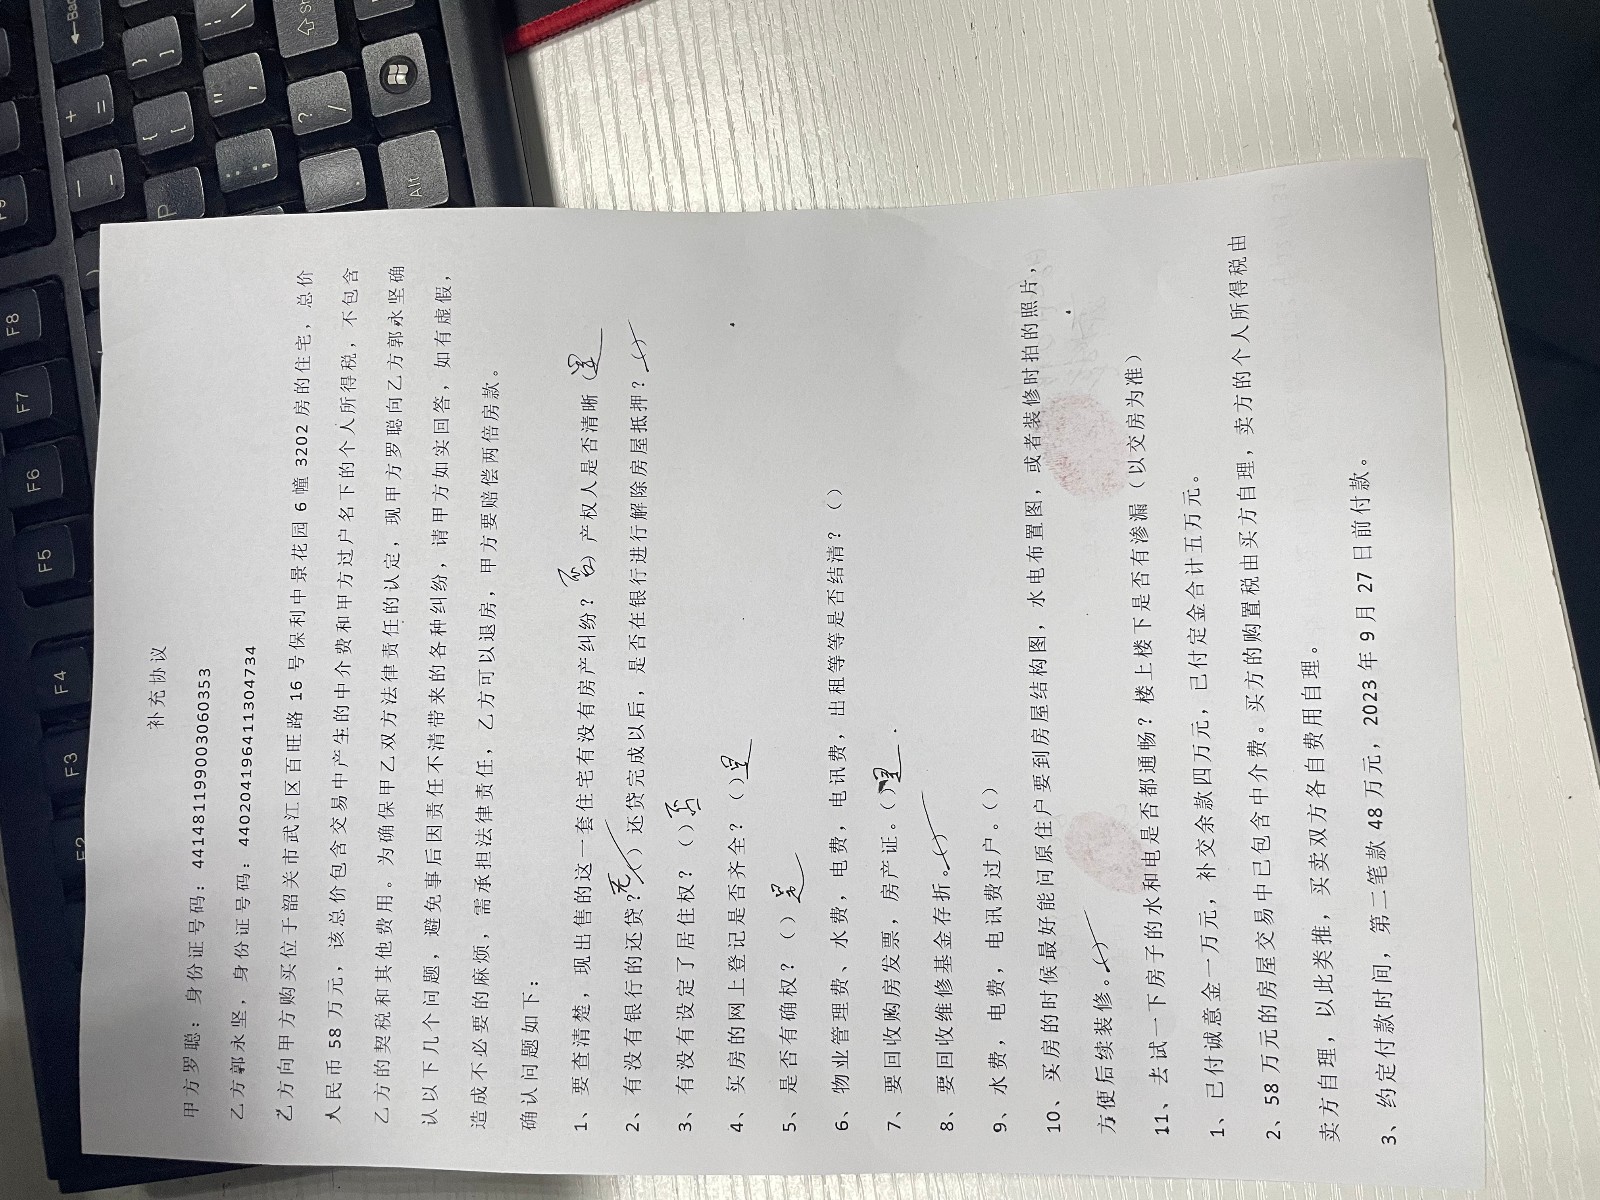 补充协议
甲方罗聪：身份证号码：441481199003060353
乙方郭永坚，身份证号码：440204196411304734
乙方向甲方购买位于韶关市武江区百旺路 16 号保利中景花园 6 幢 3202 房的住宅，总价
人民币 58 万元，该总价包含交易中产生的中介费和甲方过户名下的个人所得税，不包含
乙方的契税和其他费用。为确保甲乙双方法律责任的认定，现甲方罗聪向乙方郭永坚确
认以下几个问题，避免事后因责任不清带来的各种纠纷，请甲方如实回答，如有虚假，
造成不必要的麻烦，需承担法律责任，乙方可以退房，甲方要赔偿两倍房款。
确认问题如下：
1、要查清楚，现出售的这一套住宅有没有房产纠纷？否）产权人是否清晰（是
2、有没有银行的还贷？无（）还贷完成以后，是否在银行进行解除房屋抵押？
3、有没有设定了居住权？（）否
4、买房的网上登记是否齐全？（）是
5、是否有确权？（）是
6、物业管理费、水费，电费，电讯费，出租等等是否结清？（）
7、要回收购房发票，房产证。（）是.
8、要回收维修基金存折。
9、水费，电费，电讯费过户。（）
10、买房的时候最好能问原住户要到房屋结构图，水电布置图，或者装修时拍的照片，
方便后续装修。
11、去试一下房子的水和电是否都通畅？楼上楼下是否有渗漏（以交房为准）
1、已付诚意金一万元，补交余款四万元，已付定金合计五万元。
2、58 万元的房屋交易中已包含中介费。买方的购置税由买方自理，卖方的个人所得税由
卖方自理，以此类推，买卖双方各自费用自理。
3、约定付款时间，第二笔款 48 万元，2023 年 9 月 27 日前付款。
F9
F8
F7
F6
F5
F4
F3
F2
Alt
P